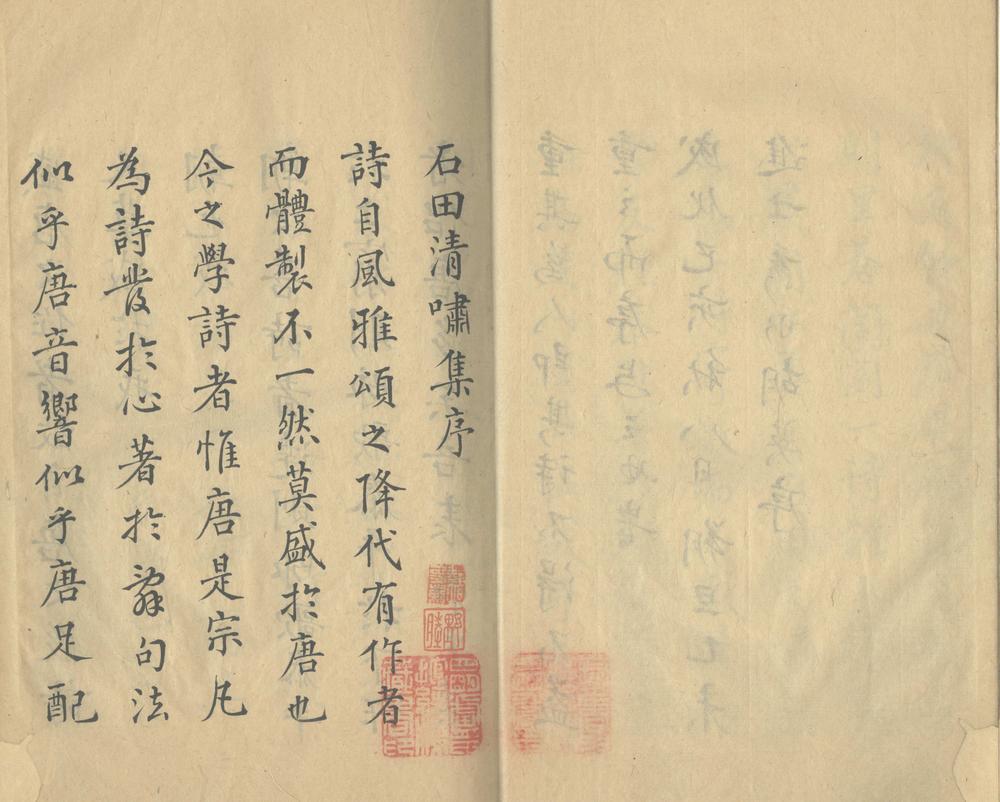 石田清嘯集序
詩自風雅頌之降代有作者
而體製不一然莫盛於唐也
今之學詩者惟唐是宗凡
為詩發於心著於辭句法
似乎唐音響似乎唐足配